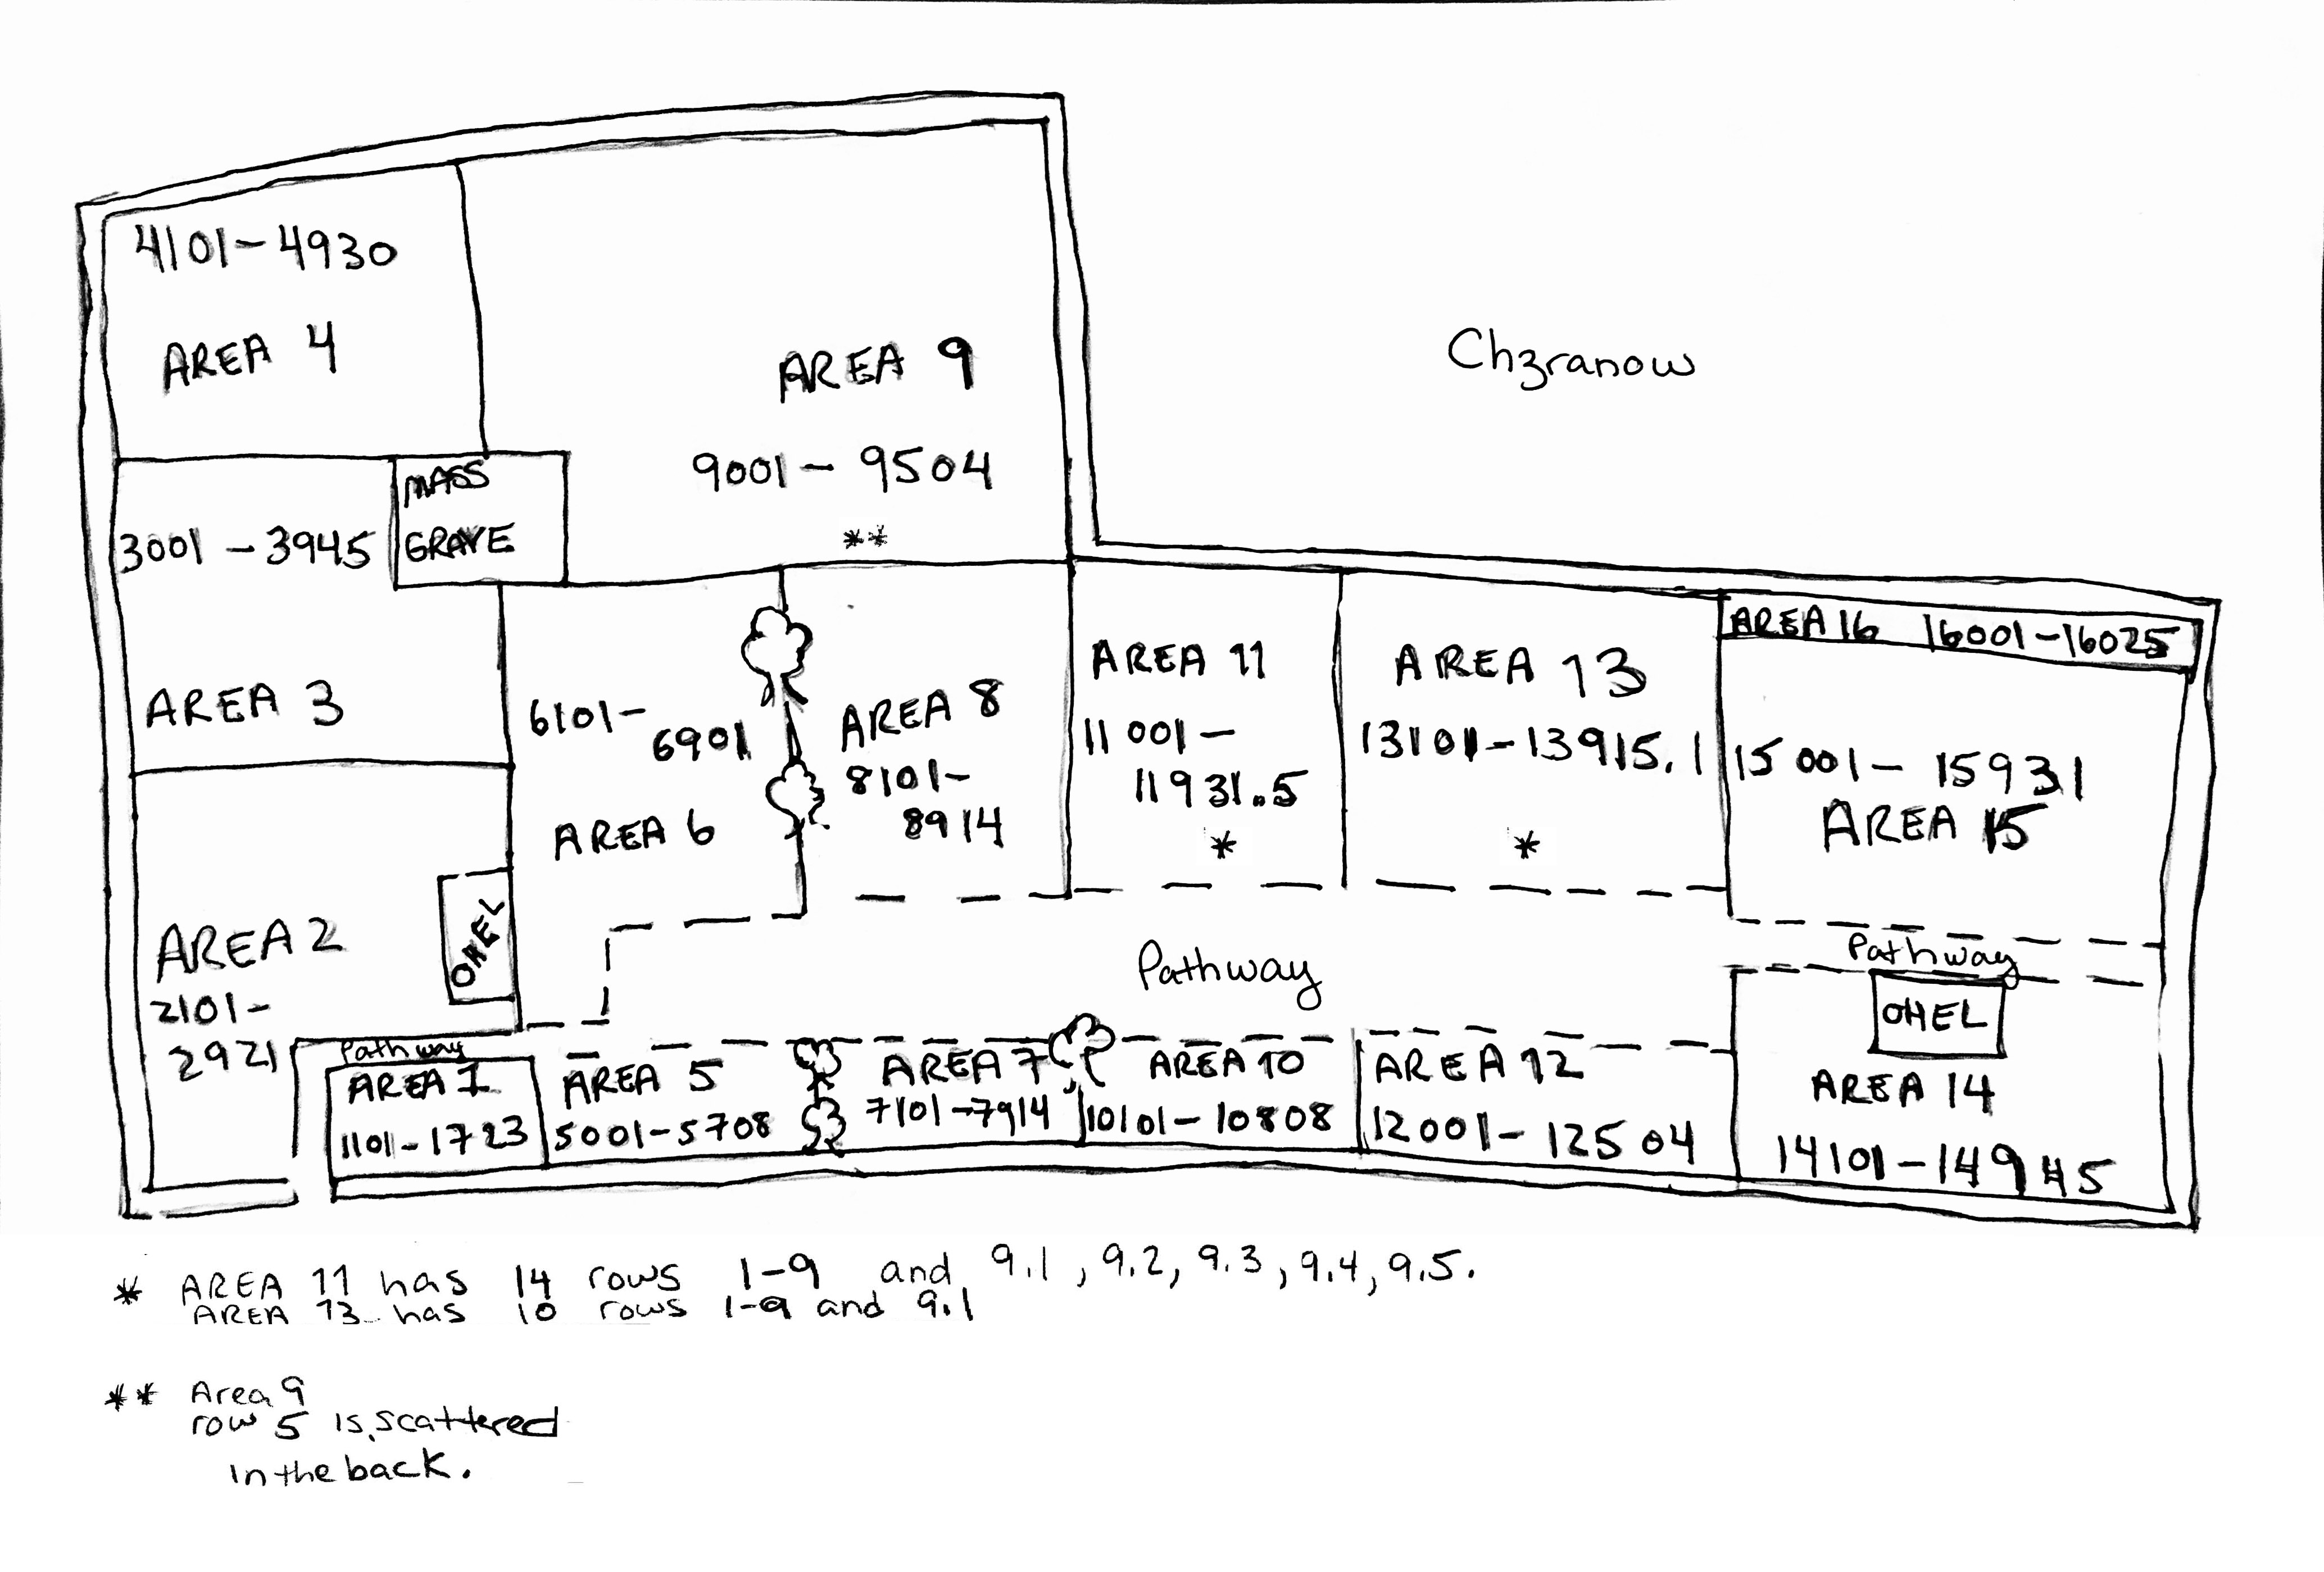 4101-4930
AREA 4
AREA 9
9001-9504
**
Chzranow
MASS
GRAVE
3001-3945
AREA 3
6101-
6901
AREA 6
AREA 8
8101-
8914
AREA 11
11001-
11931.5
*
AREA 13
13101-13915.1
*
AREA 16 16001-16025
15001-15931
AREA 15
AREA 2
2101-
2921
OHEL
Pathway
Pathway
OHEL
AREA 14
14101-14945
Pathway
AREA 1
1101-1723
AREA 5
5001-5708
AREA 7
7101-7914
AREA 10
10101-10808
AREA 12
12001-12504
* AREA 11 has 14 rows 1-9 and 9.1, 9.2, 9.3, 9.4, 9.5.
AREA 13 has 10 rows 1-9 and 9.1
** Area 9
row 5 is scattered
in the back.